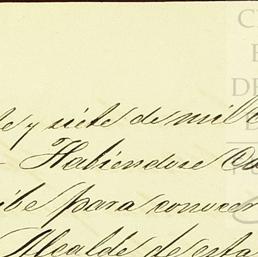 te y siete de mil
Habiendose
ibe para conocer
Alcalde de esta